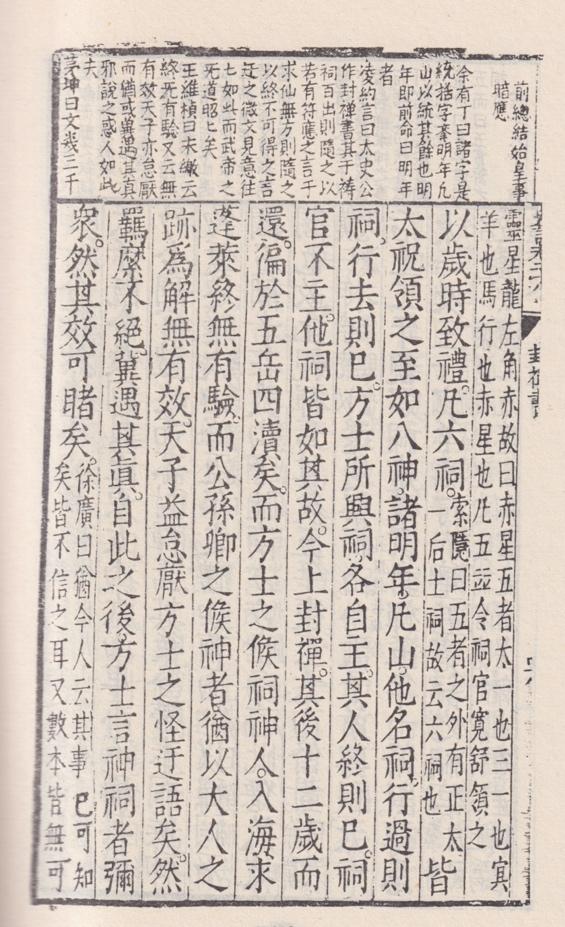 前總結始皇事
暗應
余有丁曰諸字是
統括字率明年凡
山以統其餘也明
年即前命曰明年
者
凌約言曰太史公
作封禪書其于禱
祠百出則隨之以
若有符應之言于
求仙無方則隨之
以終不可得之言
迂之微文見意往
七如此而武帝之
死道昭七矣
王維楨曰末纔云
終死有驗又云無
有效天子亦怠厭
而猶或冀遇其真
邪說之惑人如此
夫
茅坤曰文幾三千
封禪書
靈星龍左角赤故曰赤星五者太一也三一也寅
羊也馬行也赤星也凡五並令祠官寬舒領之
以歲時致禮凡六祠索隱曰五者之外有正太
一后土祠故云六祠也皆
太祝領之至如八神諸明年凡山他名祠行過則
祠行去則巳方士所興祠各自主其人終則巳祠
官不主他祠皆如其故今上封禪其後十二歲而
還徧於五岳四瀆矣而方士之候祠神人入海求
蓬萊終無有驗而公孫卿之候神者猶以大人之
跡爲解無有效天子益怠厭方士之怪迂語矣然
羈縻不絕冀遇其眞自此之後方士言神祠者彌
衆然其效可睹矣徐廣曰猶今人云其事巳可知
矣皆不信之耳又數本皆無可